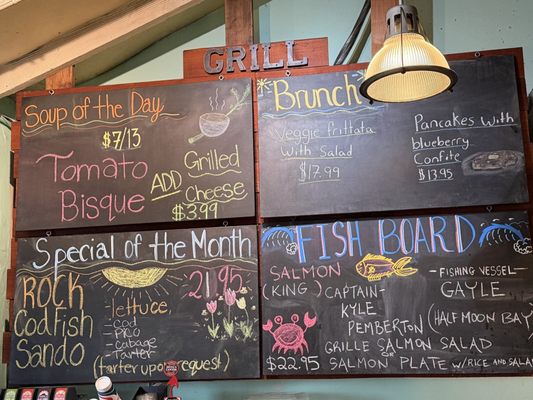 GRILL
Soup of the Day
$7/13
Tomato
Bisque
Grilled
ADD Cheese
$3.99
Brunch
Veggie Frittata
With Salad
$17.99
Pancakes with
blueberry
Confite
$13.95
Special of the Month
ROCK
Codfish
Sando
21.95
-lettuce-
-cod
-PICO
-Cabage
-Tarter
(tarter upon request)
FISH BOARD
SALMON
(KING)
CAPTAIN-
KYLE
PEMBERTON
-FISHING VESSEL-
GAYLE
(HALF MOON BAY)
GRILLE SALMON SALAD
OR
$22.95 SALMON PLATE W/RICE AND SALAD